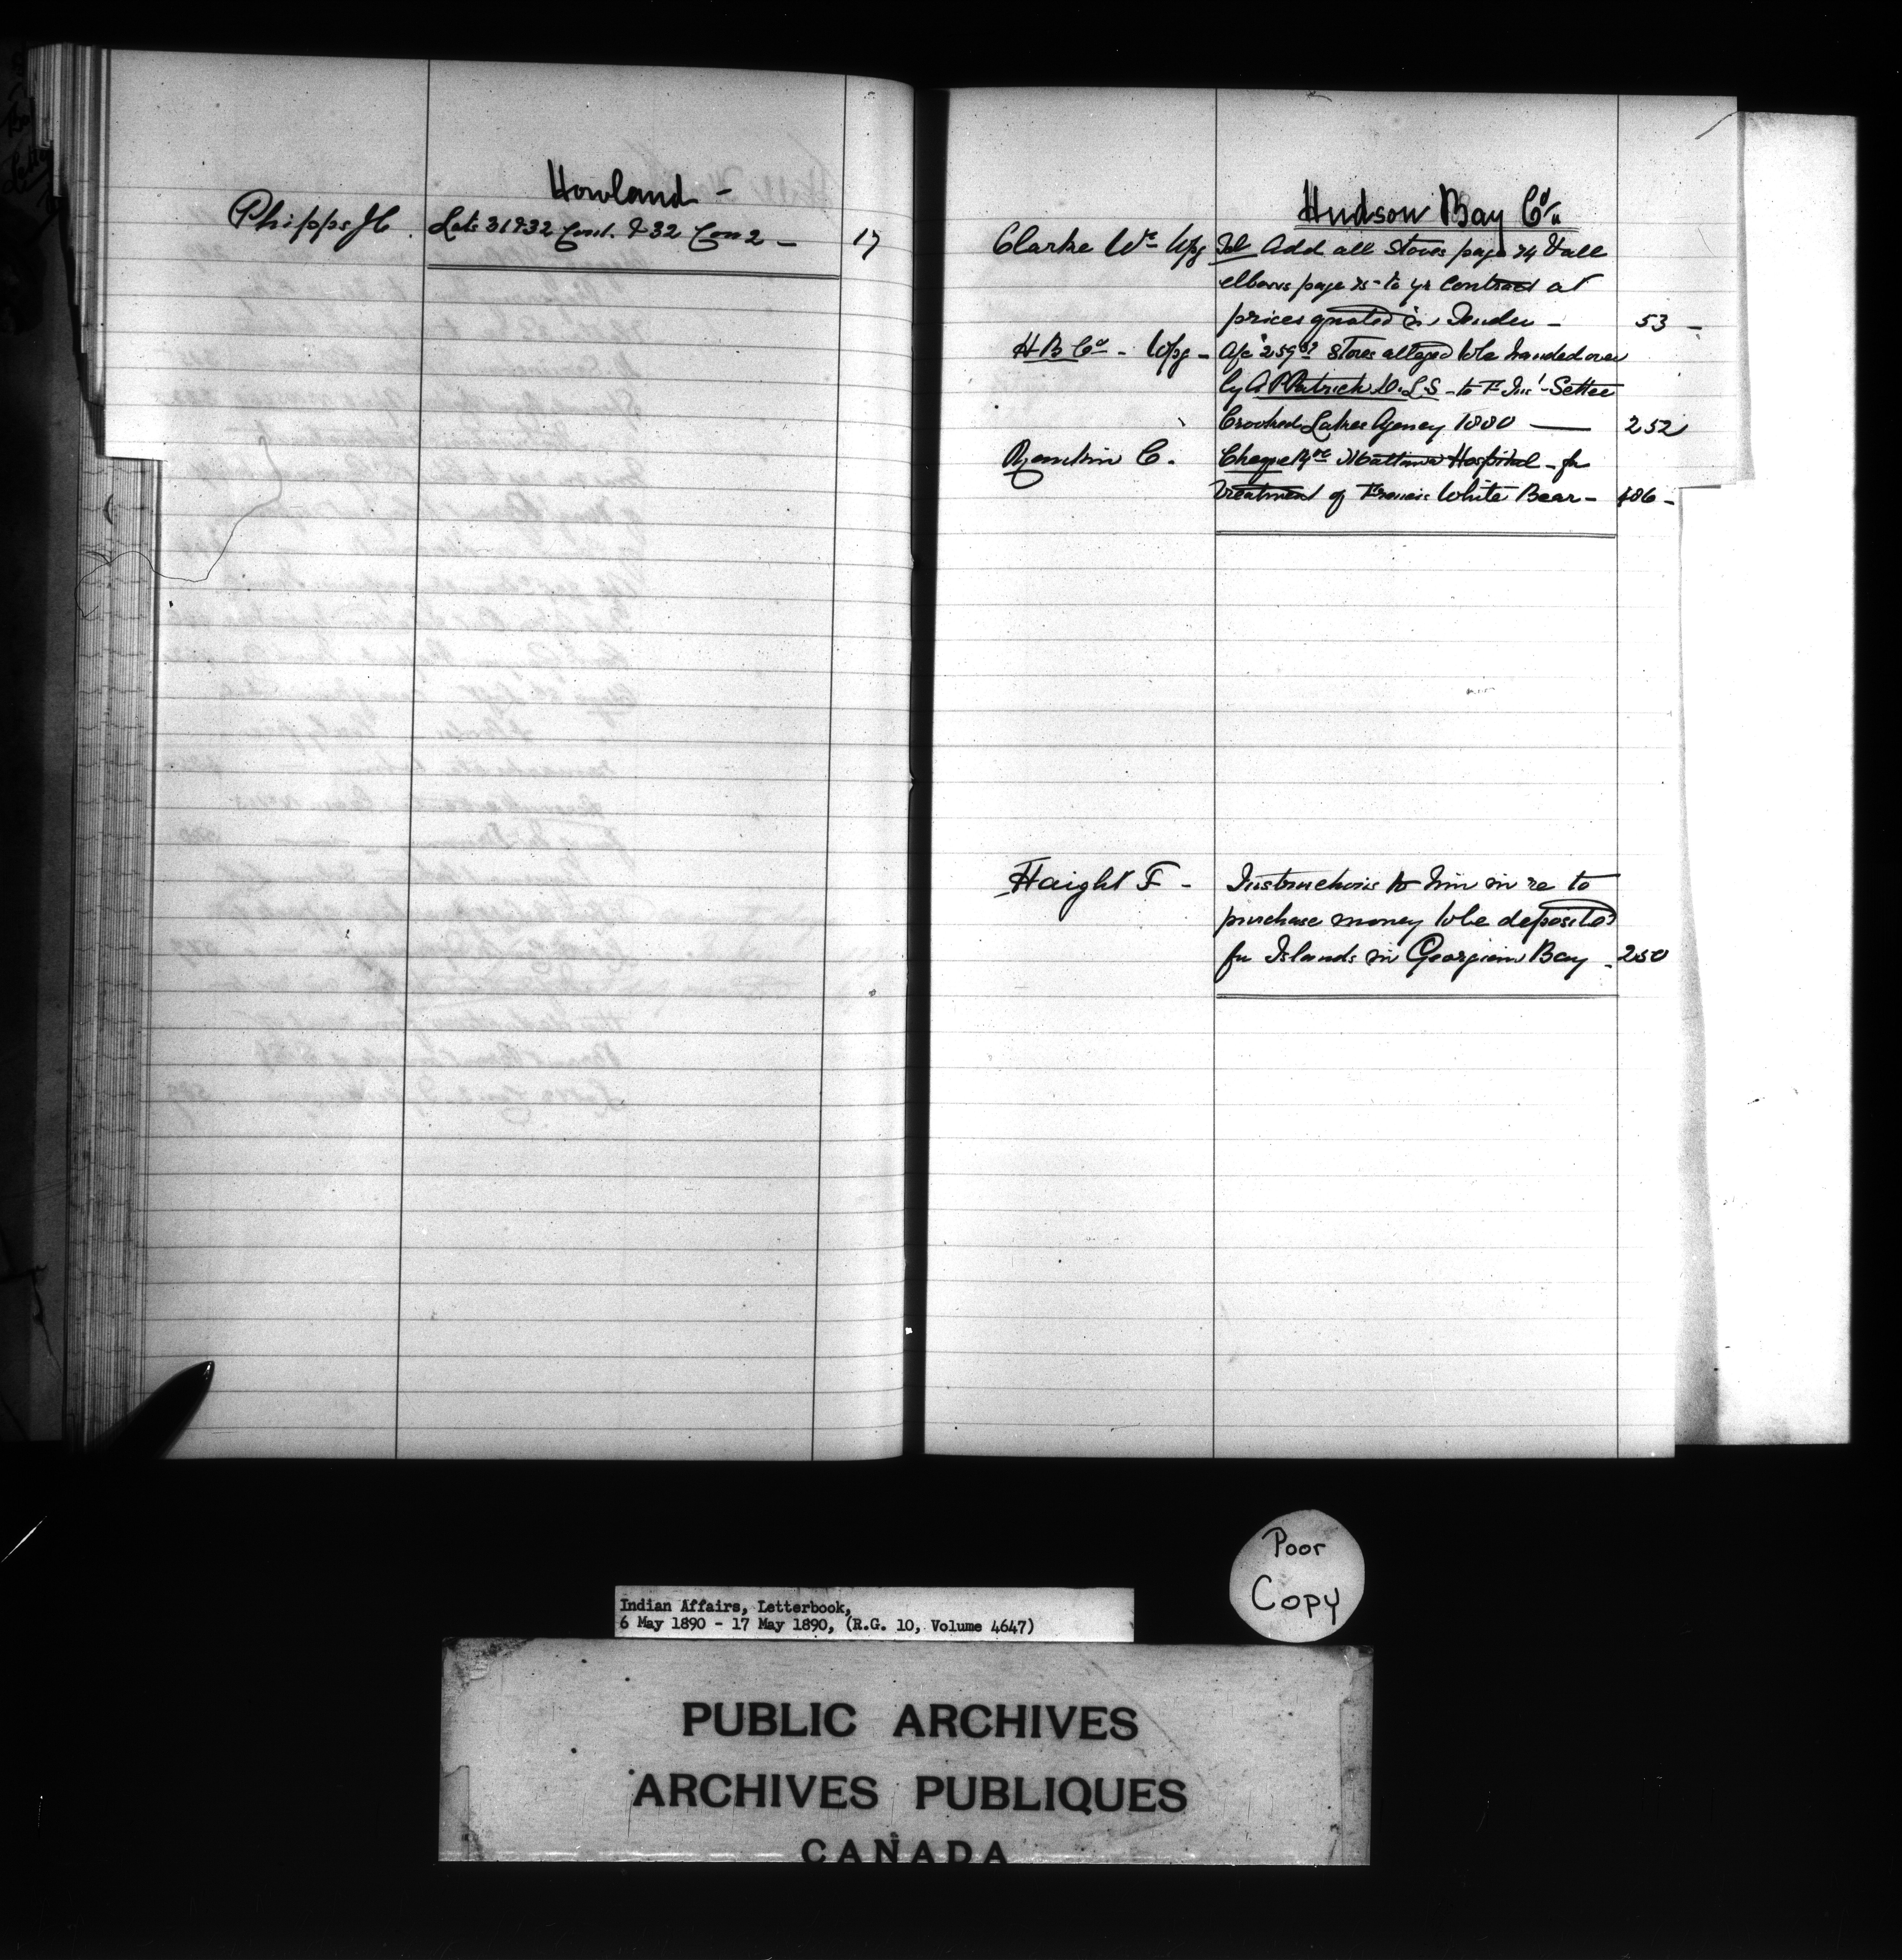 Howland -
Phipps JC. Lots 31 & 32 Con 1. & 32 Con 2 - 17
Hudson Bay Co.
Clarke Wm Wpg Tel Add all Stoves page 24 & all
elbows page 25 - to yr Contract at
prices quoted in Tender - 53 -
H B Co - Wpg - a/c Stores alleged to be handed over
by A P Patrick D.L.S - to F Ins' - Settee
Crooked Lakes Agency 1880 — 252
C. Cheque Mattawa Hospital - for
treatment of Francis White Bear - 486 -
Haight F - Instructions to him in re to
purchase money to be deposited
for Islands in Georgian Bay - 250
Poor
Copy
Indian Affairs, Letterbook,
6 May 1890 - 17 May 1890, (R.G. 10, Volume 4647)
PUBLIC ARCHIVES
ARCHIVES PUBLIQUES
CANADA